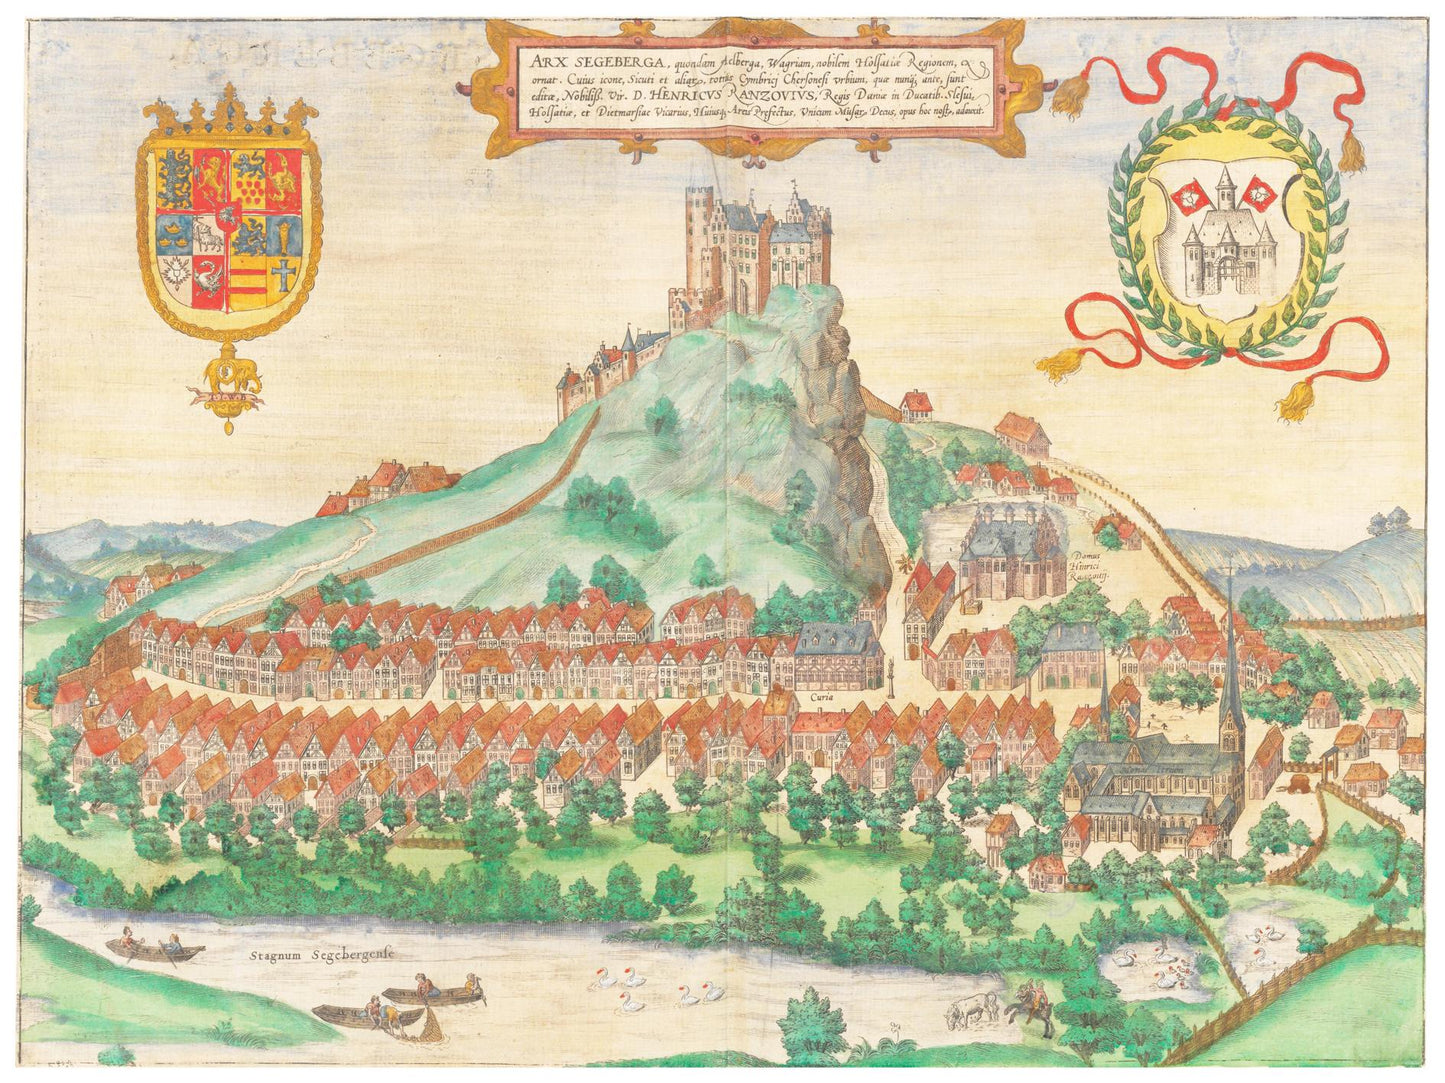 ARX SEGEBERGA, quondam Aelberga, Wagriam, nobilem Holsatiæ Regionem, ex
ornat. Cuius icone, Sicuti et aliar, totius Cymbricę Chersonesi Vrbium, quæ nunq; ante, sunt
editæ, Nobiliss. Vir. D. HENRICVS RANZOVIVS, Regis Daniæ in Ducatib. Slesui,
Holsatiæ, et Dietmarsiae Vicarius, Huiusq; Arcis Præfectus, Vnicum Musar. Decus, opus hoc nostr. adauxit.
Domus
Hinrici
Ranzouij.
Curia
Stagnum Segebergense